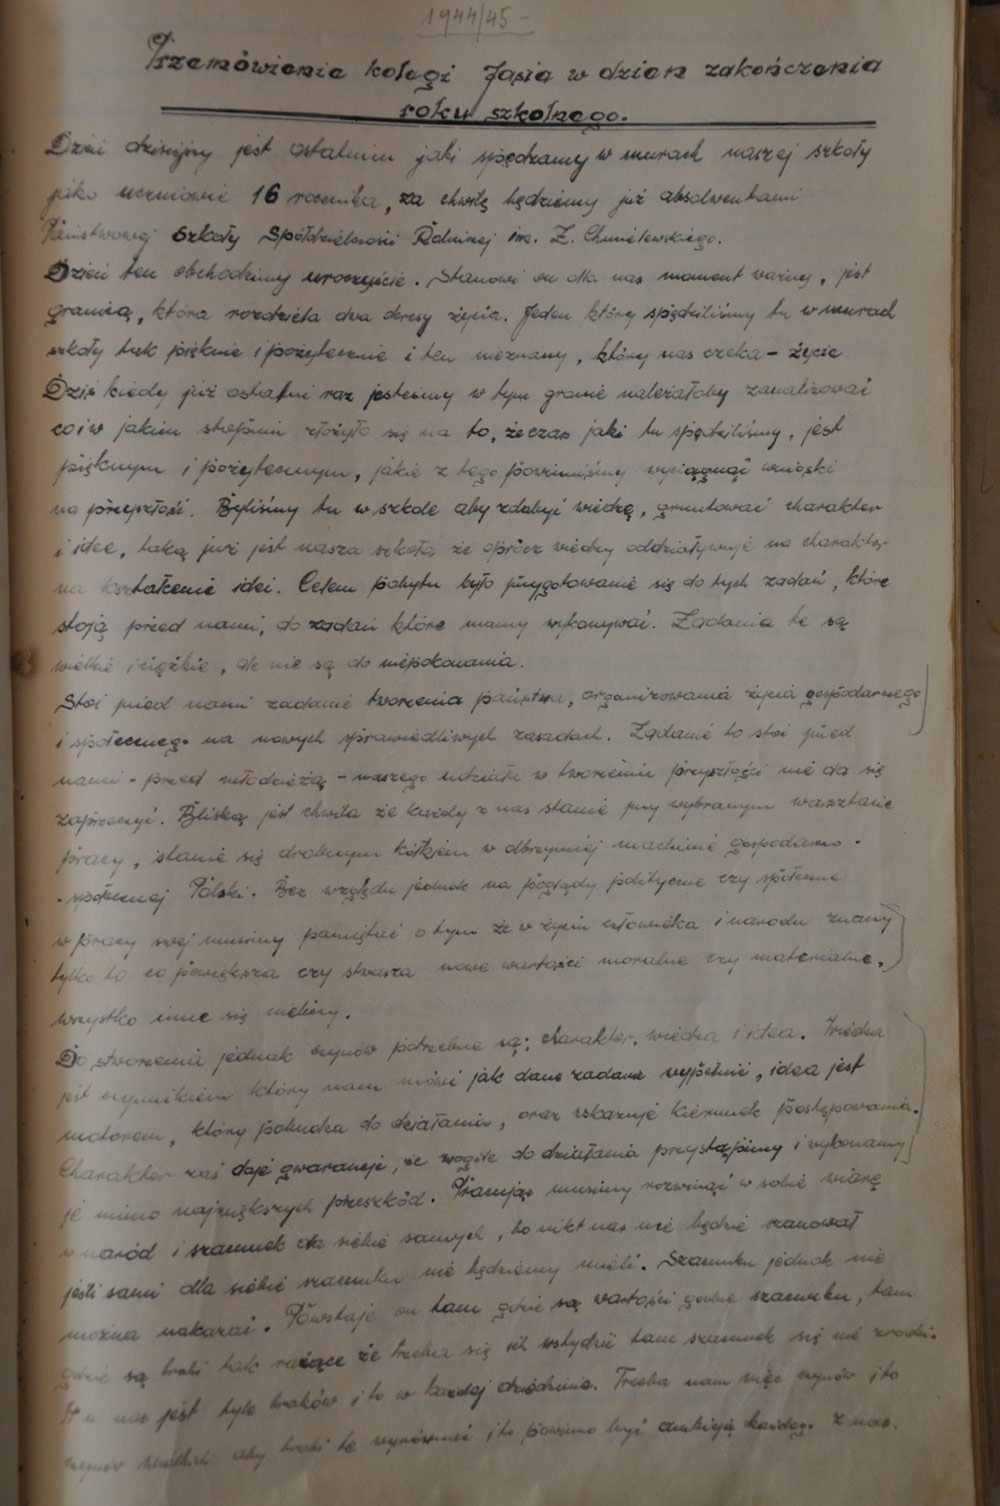 1944/45 -
Przemówienie kolegi Jasia w dzień zakończenia
roku szkolnego.
Dzień dzisiejszy jest ostatnim jaki spędzamy w murach naszej szkoły
jako uczniowie 16 rocznika, za chwilę będziemy już absolwentami
Państwowej Szkoły Spółdzielczości Rolniczej im. Z. Chmielewskiego.
Dzień ten obchodzimy uroczyście. Stanowi on dla nas moment ważny, jest
granicą, która rozdziela dwa okresy życia. Jeden który spędziliśmy tu w murach
szkoły tak pięknie i pożytecznie i ten nieznany, który nas czeka - życie
Dziś kiedy już ostatni raz jesteśmy w tym gronie należałoby zanalizować
co i w jakim stopniu złożyło się na to, że czas jaki tu spędziliśmy, jest
pięknym i pożytecznym, jakie z tego powinniśmy wyciągnąć wnioski
na przyszłość. Byliśmy tu w szkole aby zdobyć wiedzę, gruntować charakter
i idee, taką już jest nasza szkoła, że oprócz wiedzy oddziaływuje na charakter
na kształcenie idei. Celem pobytu było przygotowanie się do tych zadań, które
stoją przed nami, do zadań które mamy wykonywać. Zadania te są
wielkie i ciężkie, ale nie są do niepokonania.
Stoi przed nami zadanie tworzenia państwa, organizowania życia gospodarczego
i społecznego na nowych sprawiedliwych zasadach. Zadanie to stoi przed
nami - przed młodzieżą - naszego udziału w tworzeniu przyszłości nie da się
zaprzeczyć. Bliską jest chwila że każdy z nas stanie przy wybranym warsztacie
pracy, stanie się drobnym kółkiem w olbrzymiej machinie gospodarczo -
- społecznej Polski. Bez względu jednak na poglądy polityczne czy społeczne
w pracy swej musimy pamiętać o tym że w życiu człowieka i narodu znaczy
tylko to co powiększa czy stwarza nowe wartości moralne czy materialne,
wszystko inne się nie liczy.
Do stworzenia jednak czynów potrzebne są: charakter, wiedza i idea. Wiedza
jest czynnikiem który nam mówi jak dane zadanie wypełnić, idea jest
motorem, który pobudza do działania, oraz wskazuje kierunek postępowania.
Charakter zaś daje gwarancję, że w ogóle do działania przystąpimy i wykonamy
je mimo największych przeszkód. Pracując musimy rozwinąć w sobie wiarę
w naród i szacunek dla siebie samych, bo nikt nas nie będzie szanował
jeśli sami dla siebie szacunku nie będziemy mieli. Szacunku jednak nie
można nakazać. Powstaje on tam gdzie są wartości godne szacunku, tam
gdzie są braki tak rażące że trzeba się ich wstydzić tam szacunek się nie zrodzi.
A u nas jest tyle braków i to w każdej dziedzinie. Trzeba nam więc czynów i to
czynów wielkich aby braki te wyrównać i to powinno być ambicją każdego z nas.